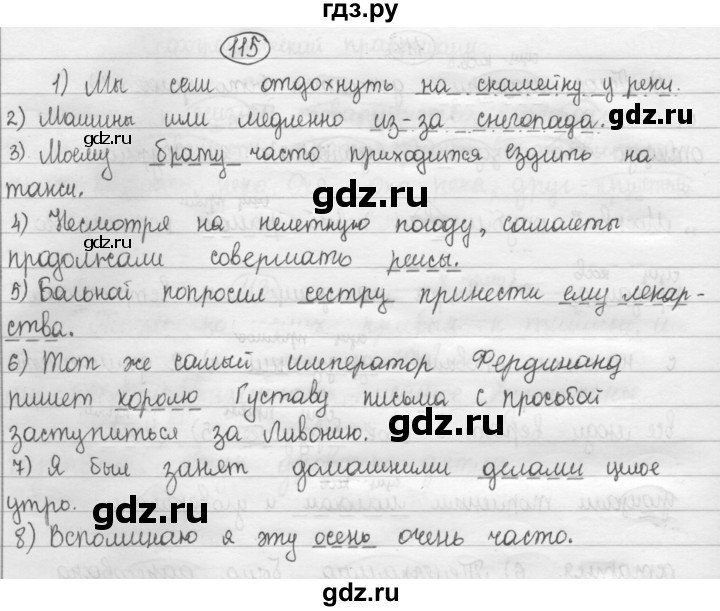 гдз.ру
115
1) Мы сели отдохнуть на скамейку у реки.
2) Машины шли медленно из-за снегопада.
3) Моему брату часто приходится ездить на
такси.
4) Несмотря на нелетную погоду, самолеты
продолжали совершать рейсы.
5) Больной попросил сестру принести ему лекар-
ства.
6) Тот же самый император Фердинанд
пишет королю Густаву письма с просьбой
заступиться за Ливонию.
7) Я был занят домашними делами целое
утро.
8) Вспоминаю я эту осень очень часто.
gdz.ru gdz.ru
gdz.ru gdz.ru
gdz.ru gdz.ru
gdz.ru gdz.ru
gdz.ru gdz.ru